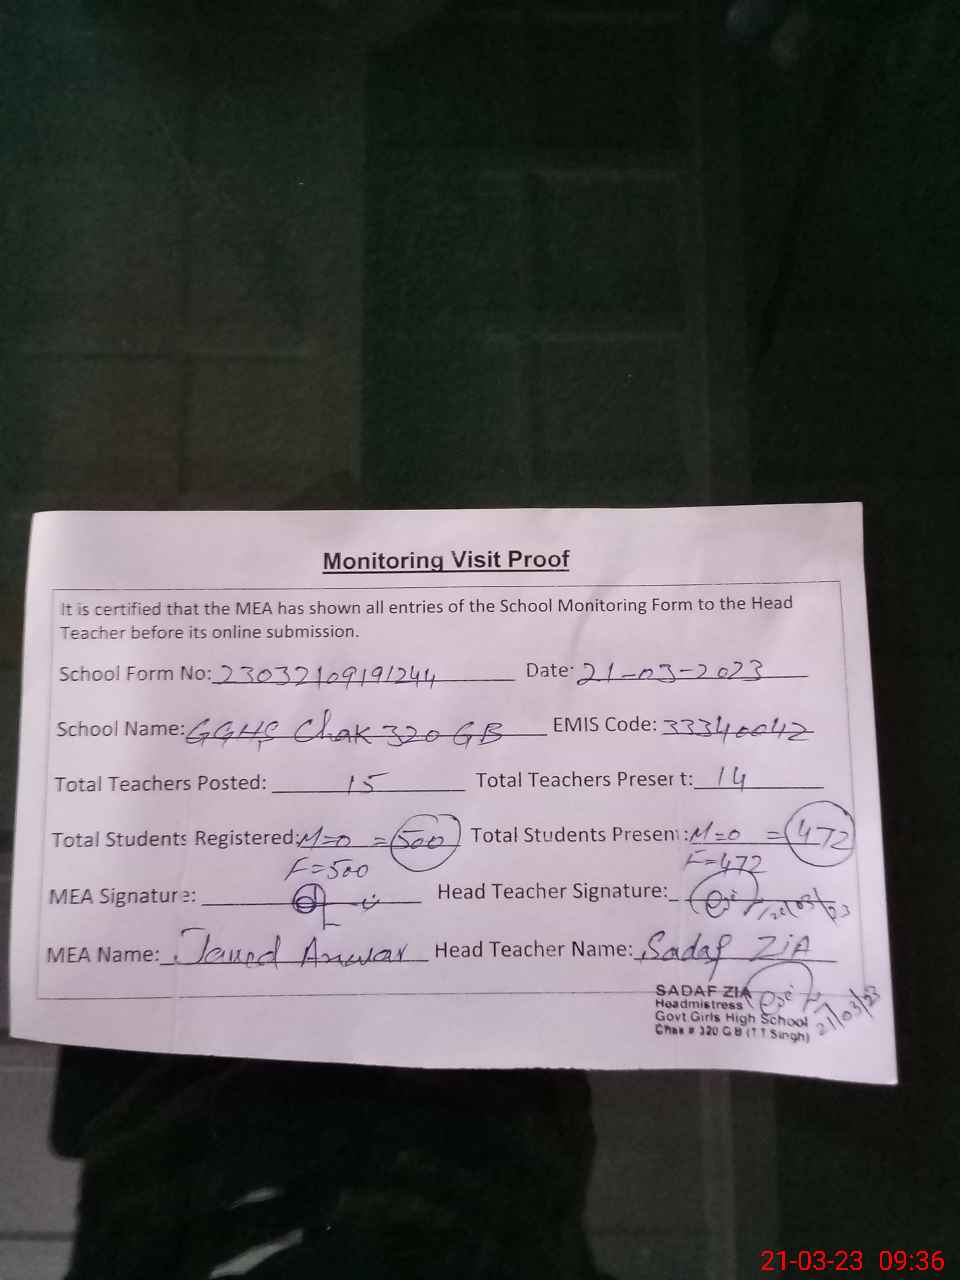 Monitoring Visit Proof
It is certified that the MEA has shown all entries of the School Monitoring Form to the Head
Teacher before its online submission.
School Form No: 23032109191244 Date: 21-03-2023
School Name: GGHS Chak 320 GB EMIS Code: 33340042
Total Teachers Posted: 15 Total Teachers Present: 14
Total Students Registered: M=0 = 500 Total Students Present: M=0 = 472
F=500 F=472
MEA Signature: Head Teacher Signature:
MEA Name: Javed Anwar Head Teacher Name: Sadaf ZiA
SADAF ZIA
Headmistress
Govt Girls High School 21/03/23
Chak # 320 G B (T T Singh)
21-03-23 09:36